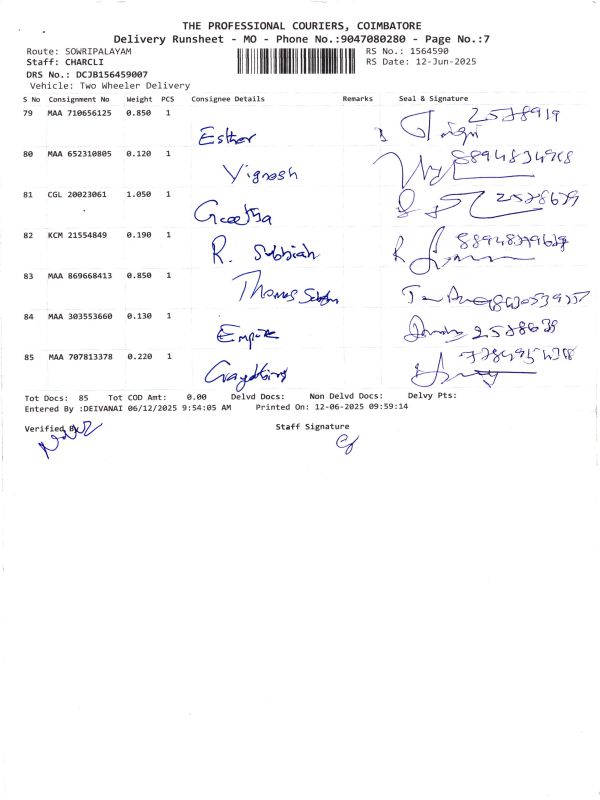 THE PROFESSIONAL COURIERS, COIMBATORE
Delivery Runsheet - MO - Phone No.:9047080280 - Page No.:7
Route: SOWRIPALAYAM RS No.: 1564590
Staff: CHARCLI RS Date: 12-Jun-2025
DRS No.: DCJB156459007
Vehicle: Two Wheeler Delivery
S No Consignment No Weight PCS Consignee Details Remarks Seal & Signature
79 MAA 710656125 0.850 1 Esther 2578919
80 MAA 652310805 0.120 1 Vignesh
81 CGL 20023061 1.050 1 Geetha 2578679
82 KCM 21554849 0.190 1 R. Subbiah
83 MAA 869668413 0.850 1 Thomas
84 MAA 303553660 0.130 1 Empire 2578639
85 MAA 707813378 0.220 1
Tot Docs: 85 Tot COD Amt: 0.00 Delvd Docs: Non Delvd Docs: Delvy Pts:
Entered By :DEIVANAI 06/12/2025 9:54:05 AM Printed On: 12-06-2025 09:59:14
Verified By Staff Signature